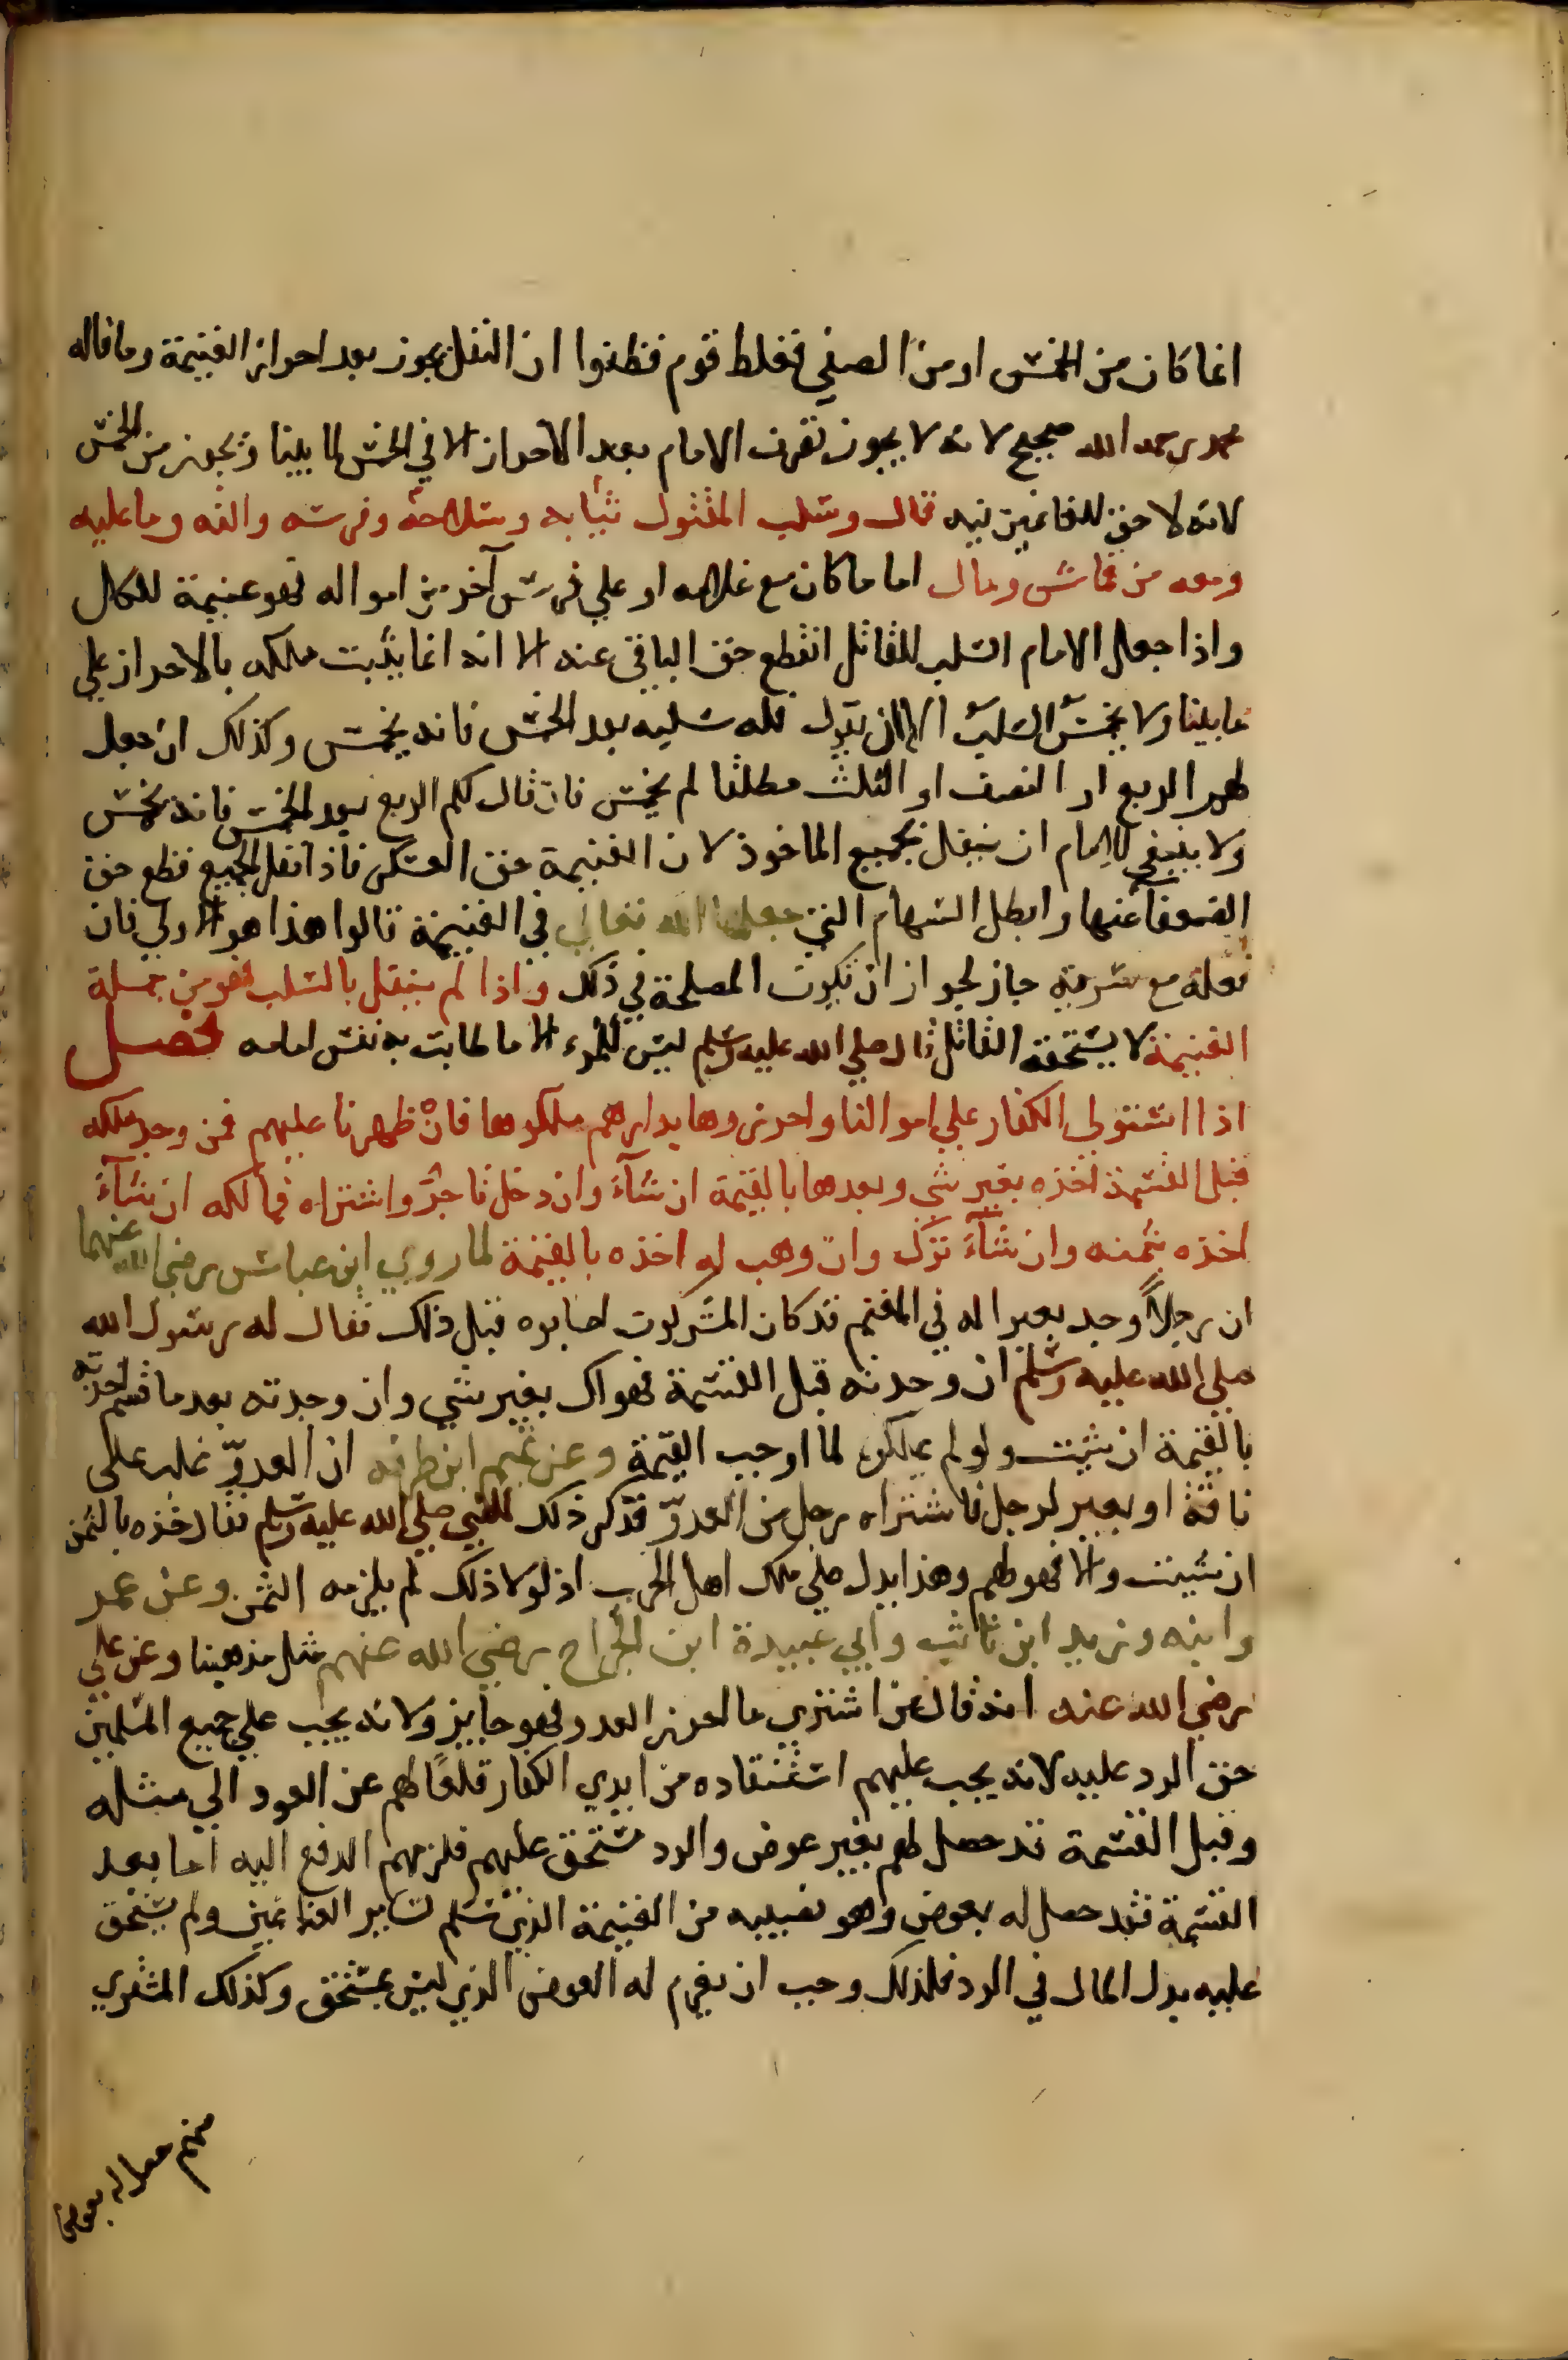 انما كان من الخمس او من الصفي فغلط قوم فظنوا ان النفل يجوز بعد احراز الغنيمة وما قاله
محمد رحمه الله صحيح لانه لا يجوز تصرف الامام بعد الاحراز الا في الخمس لما بينا ويجوز من الخمس
لانه لا حق للغانمين فيه قال وسلب المقتول ثيابه وسلاحه وفرسه والته وما عليه
ومعه من قماش ومال اما ما كان مع غلامه او علي فرس آخر من امواله فهو غنيمة للكل
واذا جعل الامام السلب للقاتل انقطع حق الباقي عنه الا انه انما يثبت ملكه بالاحراز علي
ما بينا ولا يخمس السلب الا ان يقول فله سلبه بعد الخمس فانه يخمس وكذلك ان جعل
لهم الربع او النصف او الثلث مطلقا لم يخمس فان قال لكم الربع بعد الخمس فانه يخمس
ولا ينبغي للامام ان ينفل بجميع الماخوذ لان الغنيمة حق العسكر فاذا نفل الجميع قطع حق
الضعفا عنها وابطل السهام التي جعلها الله تعالي في الغنيمة قالوا هذا هو الاولي فان
فعله مع سرية جاز لجواز ان تكون المصلحة في ذلك واذا لم ينفل بالسلب فهو من جملة
الغنيمة لا يستحقه القاتل قال صلي الله عليه وسلم ليس للمرء الا ما طابت به نفس امامه فصل
اذا استولي الكفار علي اموالنا واحرزوها بدارهم ملكوها فان ظهرنا عليهم فمن وجد ملكه
قبل القسمة اخذه بغير شي وبعدها بالقيمة ان شآء وان دخل تاجر واشتراه فمالكه ان شآء
اخذه بثمنه وان شآء ترك وان وهب له اخذه بالقيمة لما روي ابن عباس رضي الله عنهما
ان رجلاً وجد بعيرا له في المغنم قد كان المشركون اصابوه قبل ذلك فقال له رسول الله
صلي الله عليه وسلم ان وجدته قبل القسمة فهو لك بغير شي وان وجدته بعد ما قسم اخذته
بالقيمة ان شيت ولو لم يملكوه لما اوجب القيمة وعن تميم ابن طرفه ان العدوّ غلب علي
ناقة او بعير لرجل فاشتراه رجل من العدوّ فذكر ذلك للنبي صلي الله عليه وسلم فقال خذه بالثمن
ان شيت والا فهو لهم وهذا يدل علي ملك اهل الحرب اذ لولا ذلك لم يلزمه الثمن وعن عمر
وابنه وزيد ابن ثابت وابي عبيدة ابن الجراح رضي الله عنهم مثل مذهبنا وعن علي
رضي الله عنه انه قال من اشتري ما احرز العدو فهو جايز ولانه يجب علي جميع المسلمين
حق الرد عليه لانه يجب عليهم استنقاذه من ايدي الكفار قلعًا لهم عن العود الي مثله
وقبل القسمة قد حصل لهم بغير عوض والرد مستحق عليهم فلزمهم الدفع اليه اما بعد
القسمة فقد حصل له بعوض وهو نصيبه من الغنيمة الذي سلم لساير الغانمين ولم يستحق
عليه بدل المال في الرد فلذلك وجب ان يغرم له العوض الذي ليس بمستحق وكذلك المشتري
منهم حصل له بعوض